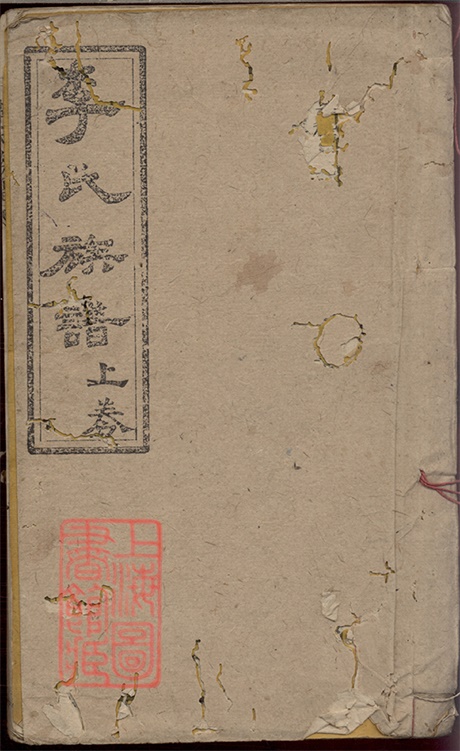 李氏族譜上卷
上海圖
書館藏